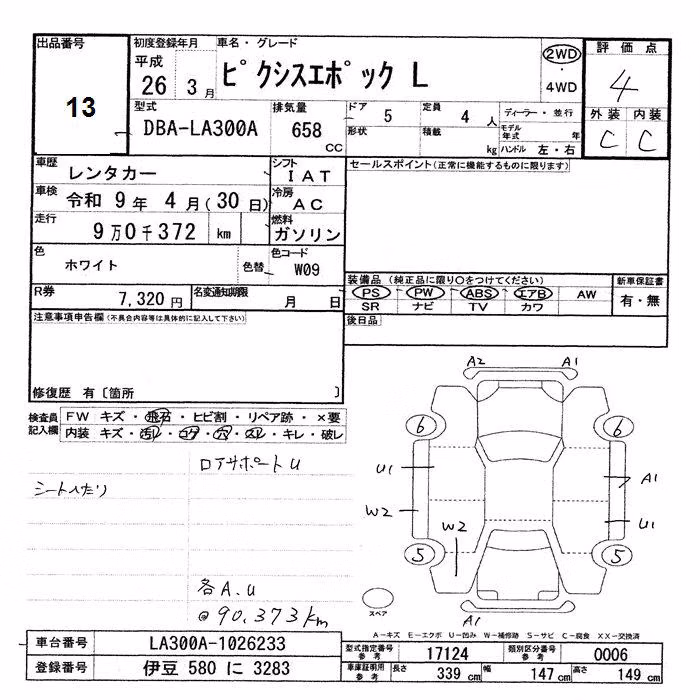 出品番号 初度登録年月 車名・グレード 評価点
13
平成 26 3月 ピクシスエポック L 2WD ・ 4WD 4
型式 DBA-LA300A 排気量 658 CC ドア 5 定員 4 人 ディーラー・並行 外装 内装
形状 積載 kg モデル年式 年 ハンドル 左・右 C C
車歴 レンタカー シフト IAT セールスポイント(正常に機能するものに限ります)
車検 令和 9年 4月(30日) 冷房 AC
走行 9万0千372 km 燃料 ガソリン
色 ホワイト 色替 色コード W09
装備品 (純正品に限り〇をつけてください) 新車保証書
PS PW ABS エアB AW 有・無
SR ナビ TV カワ
R券 7,320円 名変通知期限 月 日
後日品
注意事項申告欄(不具合内容等は具体的に記入して下さい)
修復歴 有〔箇所 〕
検査員記入欄 FW キズ・飛石・ヒビ割・リペア跡・×要
内装 キズ・汚レ・コゲ・穴・スレ・キレ・破レ
ロアサポートU
シートへたり
各A.U
@90.373km
A2 A1
6 6
U1 A1
W2 U1
W2
5 5
スペア
A1
A-キズ E-エクボ U-凹み W-補修跡 S-サビ C-腐食 XX-交換済
車台番号 LA300A-1026233
登録番号 伊豆 580 に 3283
型式指定番号 17124 類別区分番号 0006
車庫証明用参考 長さ 339 cm 幅 147 cm 高さ 149 cm